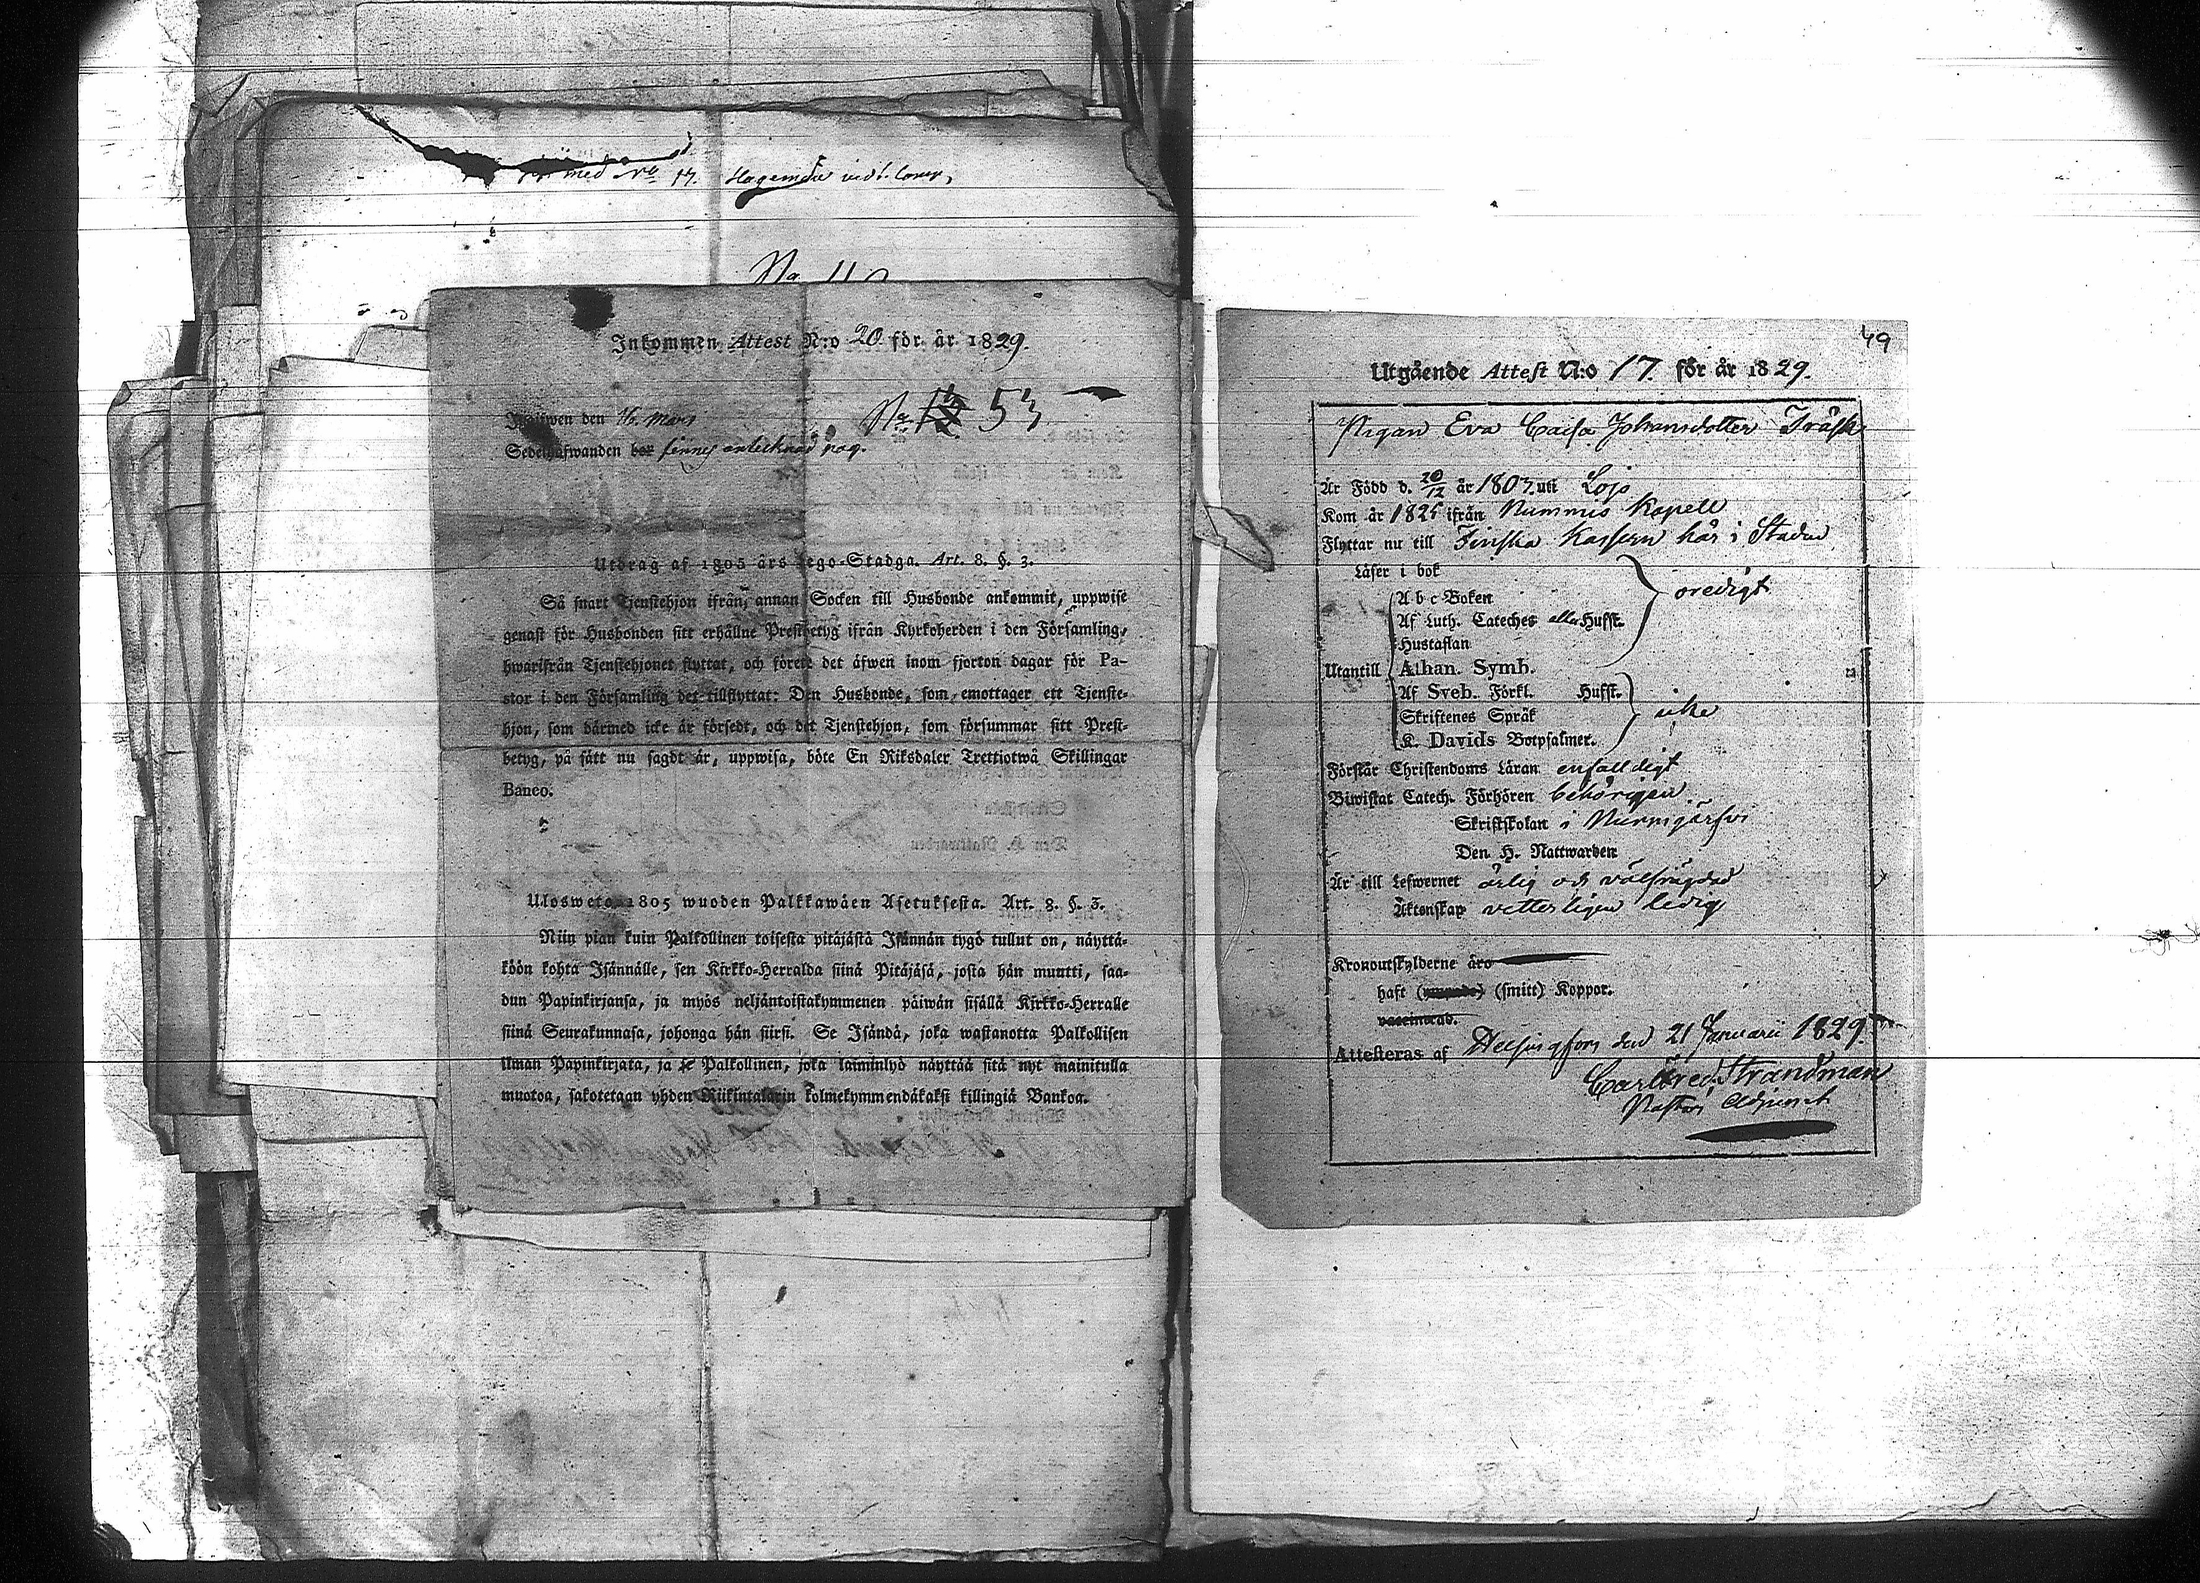 med No 17.
No 110
Inkommen Attest N:o 20 för år 1829.
No 53
den 16. Mars
Sedelhafwanden bor finnes antecknad pag.
Utdrag af 1805 års Lego-Stadga. Art. 8. §. 3.
Så snart Tjenstehjon ifrån annan Socken till Husbonde ankommit, uppwise
genast för Husbonden sitt erhållne Prestbetyg ifrån Kyrkoherden i den Församling,
hwarifrån Tjenstehjonet flyttat, och förete det äfwen inom fjorton dagar för Pa-
stor i den Församling det tillflyttat: Den Husbonde, som emottager ett Tjenste-
hjon, som därmed icke är försedt, och det Tjenstehjon, som försummar sitt Prest-
betyg, på sätt nu sagdt är, uppwisa, böte En Riksdaler Trettiotwå Skillingar
Banco.
Ulosweto 1805 wuoden Palkkawäen Asetuksesta. Art. 8. §. 3.
Niin pian kuin Palkollinen toisesta pitäjästä Isännän tygö tullut on, näyttä-
köön kohta Isännälle, sen Kirkko-Herralda siinä Pitäjäsä, josta hän muutti, saa-
dun Papinkirjansa, ja myös neljäntoistakymmenen päiwän sisällä Kirkko-Herralle
siinä Seurakunnasa, johonga hän siirsi. Se Isändä, joka wastanotta Palkollisen
ilman Papinkirjata, ja se Palkollinen, joka laiminlyö näyttää sitä nyt mainitulla
muotoa, sakotetaan yhden Riikintalarin kolmekymmendäkaksi killingiä Bankoa.
49
Utgående Attest N:o 17. för år 1829.
Pigan Eva Caisa Johansdotter Träsk
Är Född d. 20/12 år 1807. uti Lojo
Kom år 1825 ifrån Nummis Kapell
Flyttar nu till Finska Kassern här i Staden
Läser i bok
A b c Boken
oredigt
Af Luth. Cateches alla Hufst.
Hustaflan
Utantill Athan. Symb.
Af Sveb. Förkl. Hufst.
Skriftenes Språk
icke
K. Davids Botpsalmer.
Förstår Christendoms Läran enfalldigt
Biwistat Catech. Förhören behörigen
Skriftskolan i Nurmijärfvi
Den H. Nattwarden
Är till Lefwernet ärlig och välfrägdad
Äktenskap vetterligen ledig
Kronoutskylderne äro
haft (ympade) (smitt) Koppor.
vaccinerad.
Attesteras af Helsingfors den 21 Januarii 1829.
Carl Fred. Strandman
Pastors Adjunct